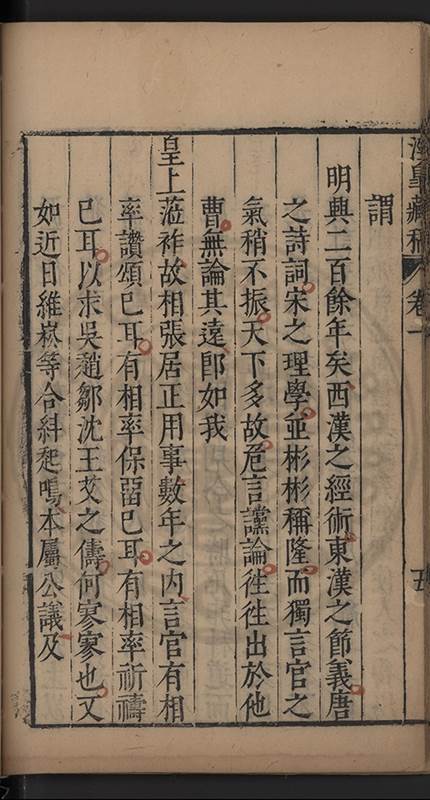 藏稿 卷一 五
謂
明興二百餘年矣西漢之經術東漢之節義唐
之詩詞宋之理學並彬彬稱隆而獨言官之
氣稍不振天下多故危言讜論往往出於他
曹無論其遠卽如我
皇上蒞祚故相張居正用事數年之內言官有相
率讚頌已耳有相率保留已耳有相率祈禱
已耳以求吳趙鄒沈王艾之儔何寥寥也又
如近日維崧等合糾起鳴本屬公議及